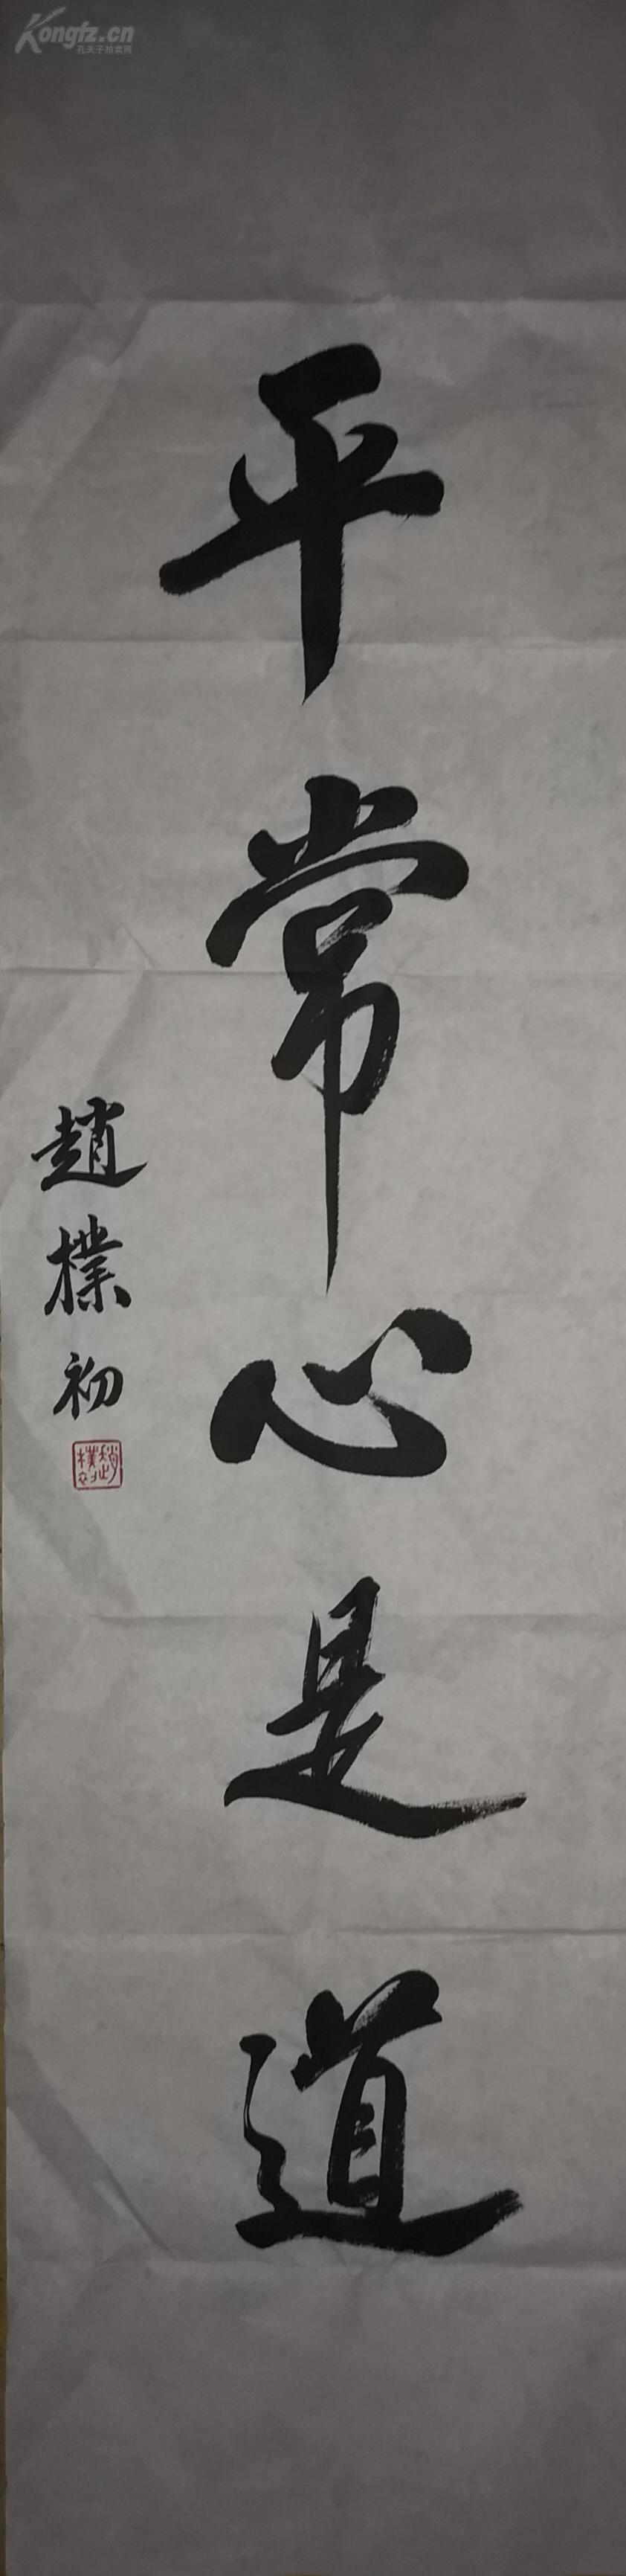 Kongfz.cn
孔夫子拍卖网
平常心是道
趙樸初
趙樸初